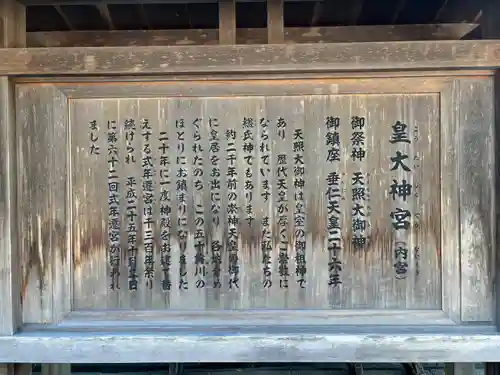 皇大神宮（内宮）
こうたいじんぐう ないくう
御祭神 天照大御神
御鎮座 垂仁天皇二十六年
天照大御神は皇室の御祖神で
あり 歴代天皇が厚くご崇敬に
なられています また私たちの
総氏神でもあります
約二千年前の崇神天皇の御代
に皇居をお出になり 各地をめ
ぐられたのち この五十鈴川の
ほとりにお鎮まりになりました
二十年に一度神殿をお建て替
えする式年遷宮は千三百年祭り
続けられ 平成二十五年十月二日
に第六十二回式年遷宮が行われ
ました